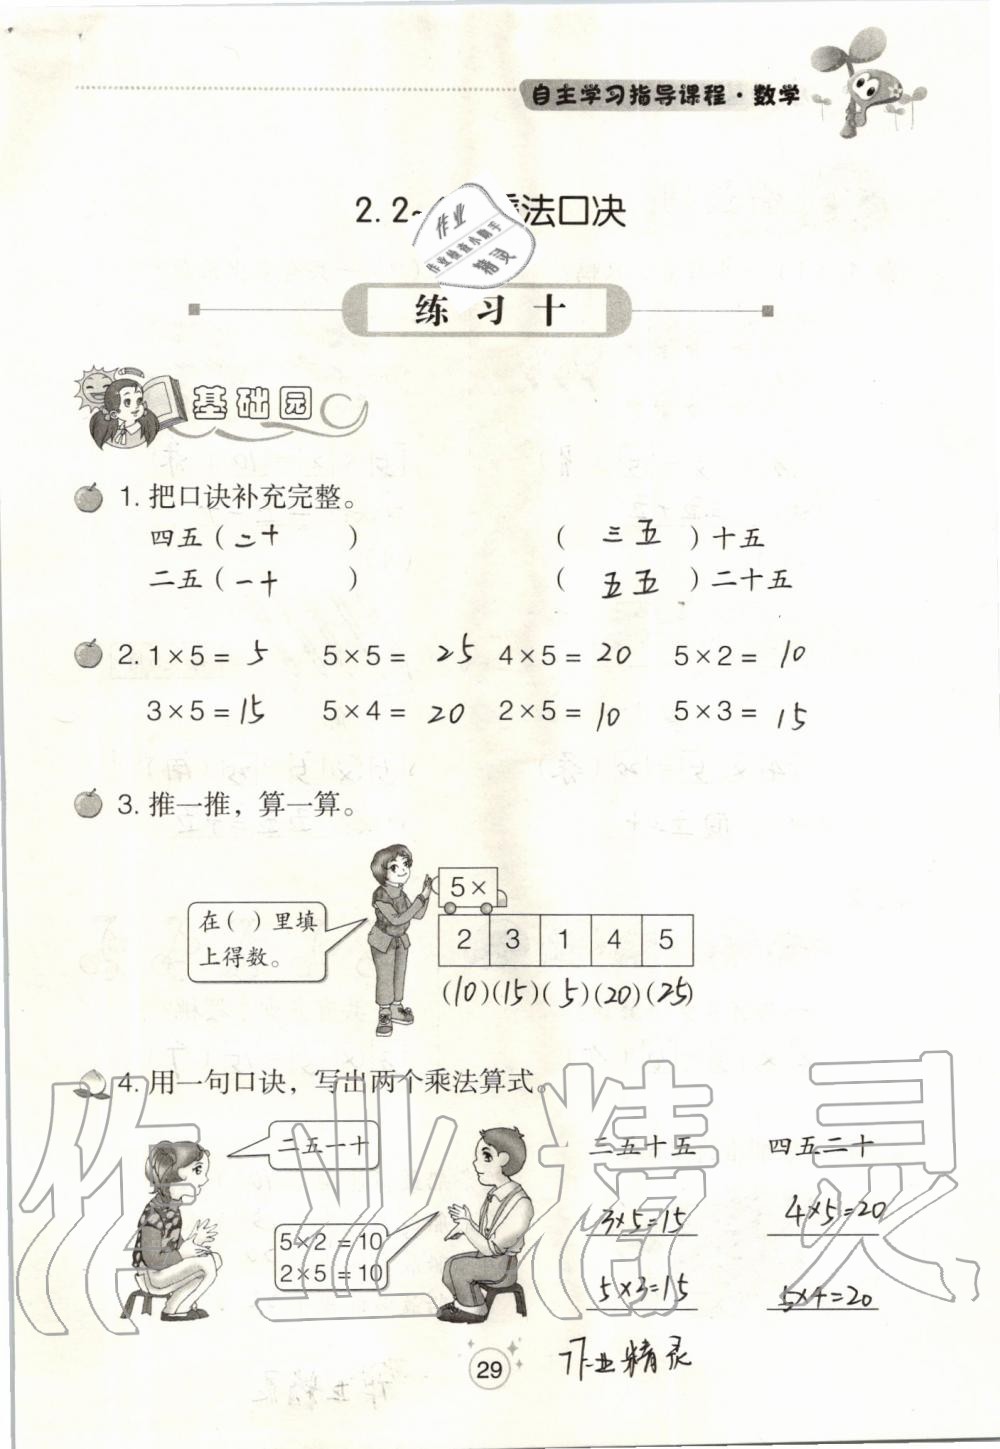 自主学习指导课程·数学
2.2~ 乘法口决
作业
作业检查小助手
精灵
练习十
基础园
1.把口诀补充完整。
四五(二十) (三五)十五
二五(一十) (五五)二十五
2.1×5=5 5×5=25 4×5=20 5×2=10
3×5=15 5×4=20 2×5=10 5×3=15
3.推一推，算一算。
5×
在( )里填
上得数。
2 3 1 4 5
(10)(15)(5)(20)(25)
4.用一句口诀，写出两个乘法算式。
二五一十
三五十五 四五二十
3×5=15 4×5=20
5×2=10
2×5=10
5×3=15 5×4=20
作业精灵
29
作业精灵